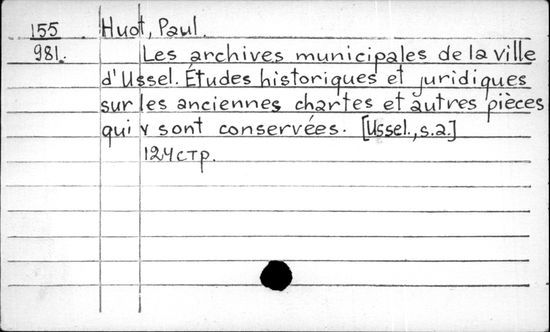 155 Huot, Paul.
981. Les archives municipales de la ville
d'Ussel. Études historiques et juridiques
sur les anciennes chartes et autres pièces
qui y sont conservées. [Ussel., s.a.]
124 стр.